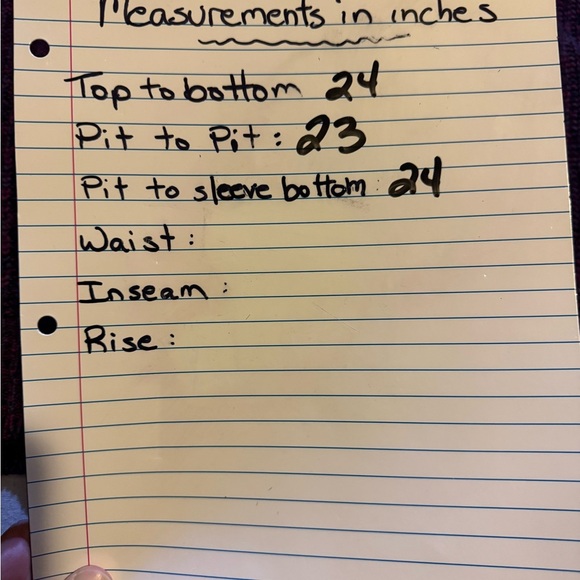 Measurements in inches
Top to bottom 24
Pit to Pit: 23
Pit to sleeve bottom: 24
Waist:
Inseam:
Rise: